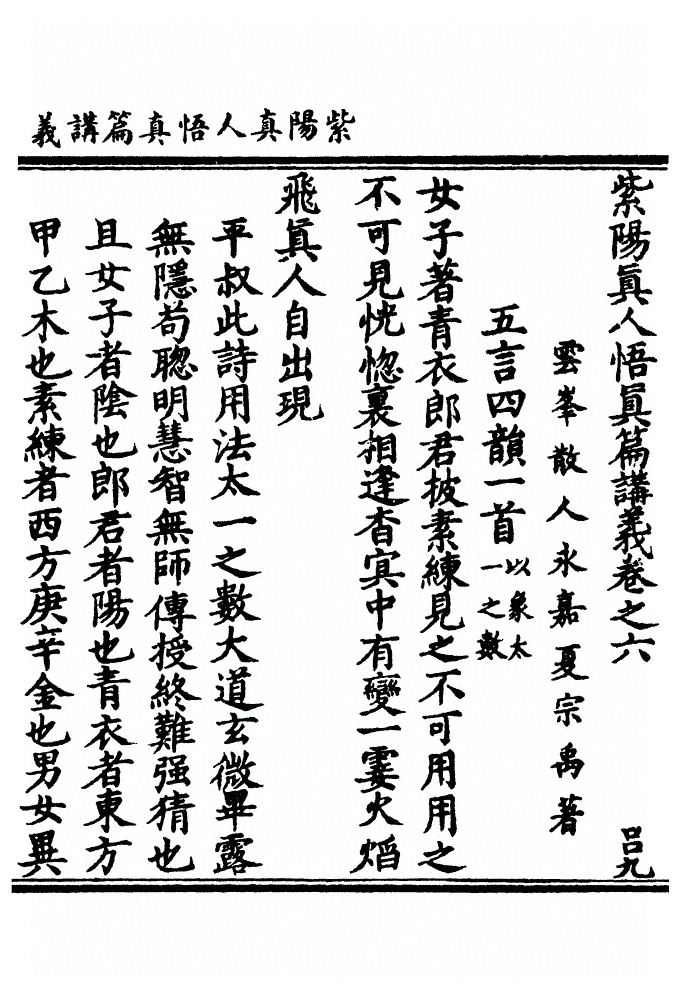 紫陽真人悟真篇講義
紫陽眞人悟眞篇講義卷之六
呂九
雲峯散人永嘉夏宗禹著
五言四韻一首以象太一之數
女子著青衣郎君披素練見之不可用用之
不可見恍惚裏相逢杳冥中有變一霎火熖
飛眞人自出現
平叔此詩用法太一之數大道玄微畢露
無隱苟聰明慧智無師傳授終難强猜也
且女子者陰也郎君者陽也青衣者東方
甲乙木也素練者西方庚辛金也男女異